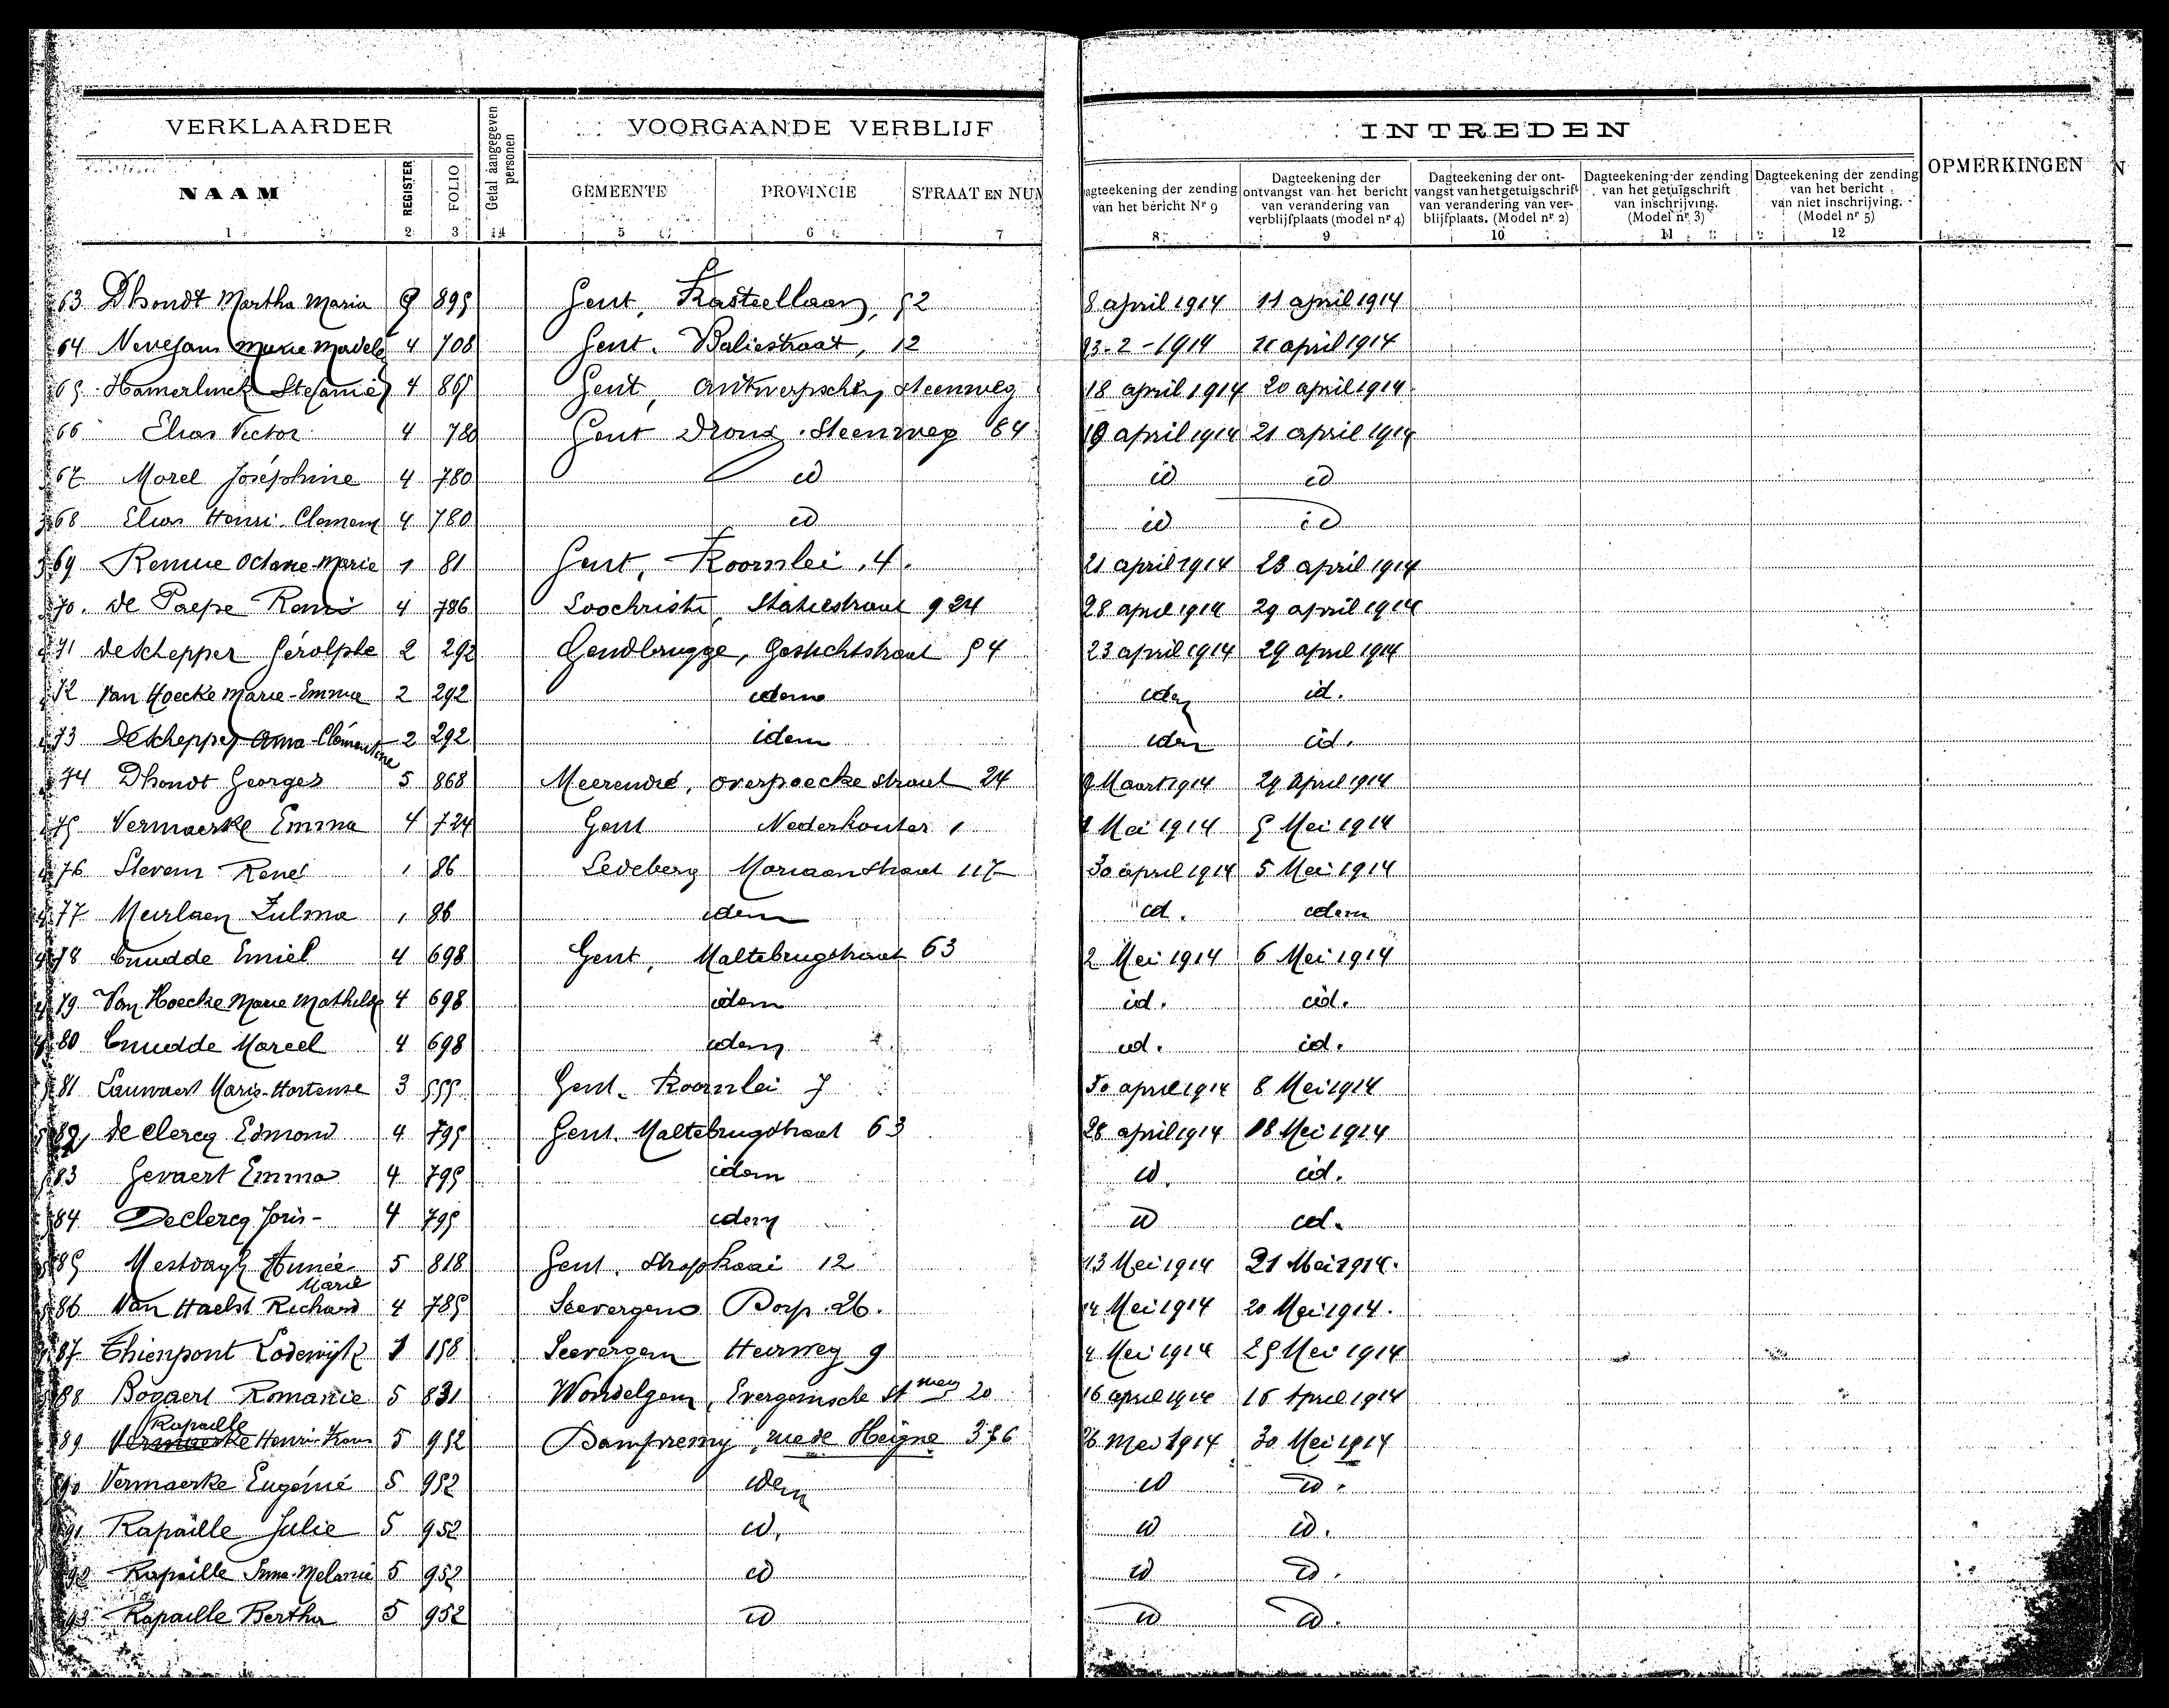 VERKLAARDER
Getal aangegeven personen
VOORGAANDE VERBLIJF
INTREDEN
OPMERKINGEN
NAAM REGISTER FOLIO GEMEENTE PROVINCIE STRAAT EN NUM
agteekening der zending van het bericht Nr 9
Dagteekening der ontvangst van het bericht van verandering van verblijfplaats (model nr 4)
Dagteekening der ontvangst van het getuigschrift van verandering van verblijfplaats. (Model nr 2)
Dagteekening der zending van het getuigschrift van inschrijving. (Model nr 3)
Dagteekening der zending van het bericht van niet inschrijving. (Model nr 5)
1 2 3 14 5 6 7 8 9 10 11 12
63 Dhondt Martha Maria 895 Gent, Kasteellaan, 52 8 april 1914 11 april 1914
64 Nevejans Marie Madele 4 708 Gent. Baliestraat, 12 13-2-1914 11 april 1914
65 Hamerlinck Stefanie 4 865 Gent, Antwerpschen steenweg 18 april 1914 20 april 1914
66 Elias Victor 4 780 Gent Drong. Steenweg 64 19 april 1914 21 april 1914
67 Morel Joséphine 4 780 id id id
68 Elias Henri Clemens 4 780 id id id
69 Remue Octavie-Marie 1 81 Gent, Koornlei, 4. 21 april 1914 23 april 1914
70. De Paepe 4 786 Loochristi, Statiestraat 924 28 april 1914 29 april 1914
71 De Schepper Gérolphe 2 292 Gendbrugge, Gestichtstraat 54 23 april 1914 29 april 1914
72 Van Hoecke Marie-Emma 2 292 idem idem id.
73 De Schepper Anna-Clémentine 2 292 idem idem id.
74 Dhondt Georges 5 868 Meerendré, overpoecke straat 24 9 Maart 1914 29 April 1914
75 Vermaerke Emma 4 724 Gent Nederkouter 1 Mei 1914 5 Mei 1914
76 Stevens René 1 86 Ledeberg Moriaanstraat 117 30 april 1914 5 Mei 1914
77 Meirlaen Zulma 1 86 idem id. idem
78 Cnudde Emiel 4 698 Gent, Maltebrugstraat 63 2 Mei 1914 6 Mei 1914
79 Van Hoecke Marie Mathilde 4 698 idem id. id.
80 Cnudde Marcel 4 698 idem id. id.
81 Lauwaert Marie-Hortense 3 555 Gent. Koornlei 7 30 april 1914 8 Mei 1914
82 De Clercq Edmond 4 795 Gent. Maltebrugstraat 63 28 april 1914 18 Mei 1914
83 Gevaert Emma 4 795 idem id. id.
84 Declercq Joris- 4 795 idem id id.
85 Mestdagh Marie 5 818 Gent. Stropkaai 12 13 Mei 1914 21 Mei 1914.
86 Van Haelst Richard 4 785 Seevergem Dorp 26. 14 Mei 1914 20 Mei 1914.
87 Thienpont Lodewijk 1 158 Seevergem Heirweg 9 Mei 1914 25 Mei 1914
88 Bogaert Romanie 5 831 Wondelgem, Evergemsche St weg 20 16 april 1914 16 April 1914
Rapaille
89 Vermaerke Henri-Frans 5 952 Dampremy, rue de Heigne 376 26 Mei 1914 30 Mei 1914
90 Vermaerke Eugénie 5 952 idem id id.
91 Rapaille Julie 5 952 id. id id.
92 Rapaille Anna-Melanie 5 952 id id id.
93 Rapaille Bertha 5 952 id id id.